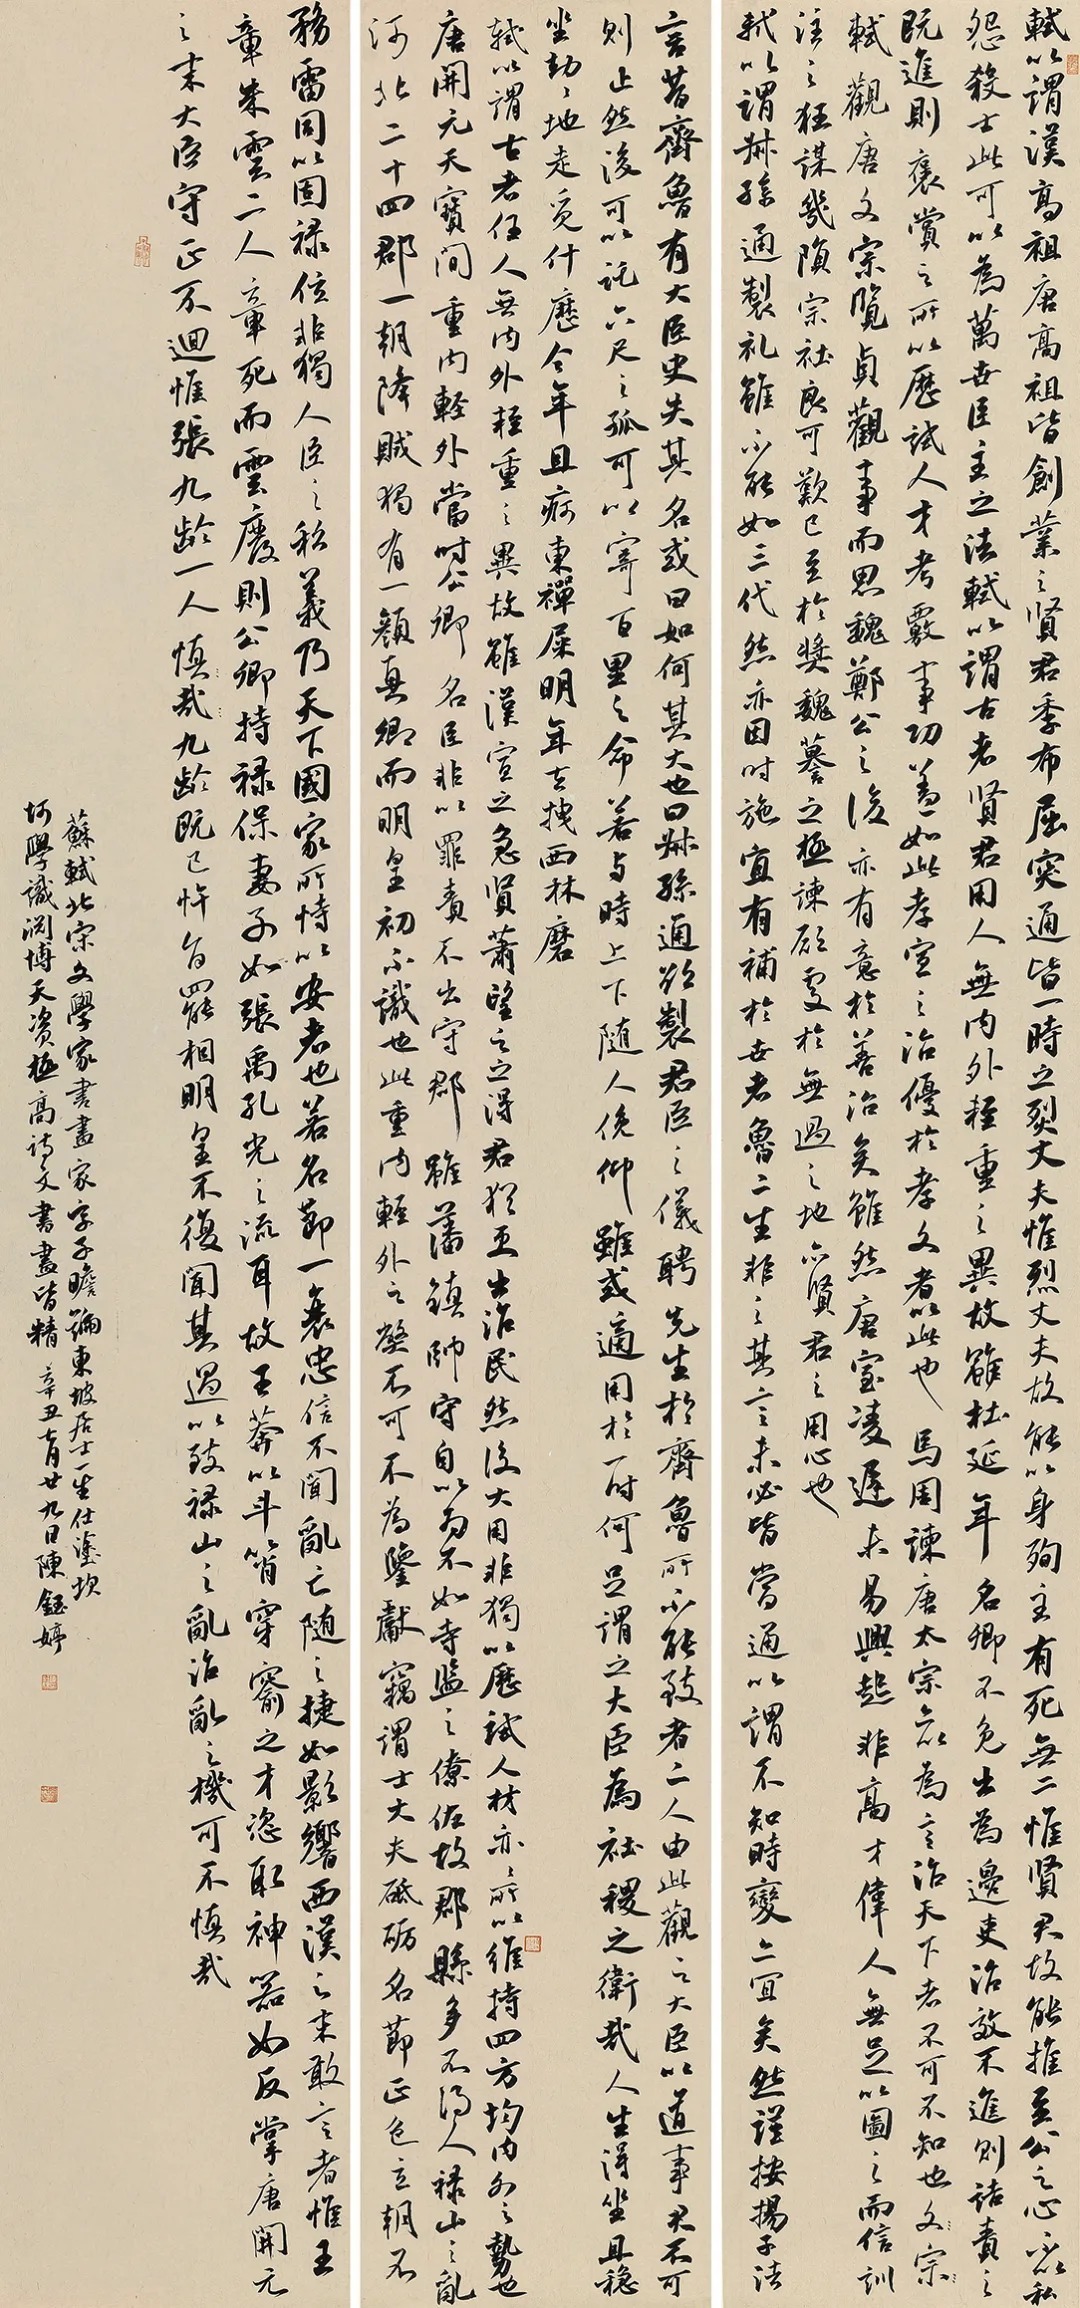 軾以謂漢高祖唐高祖皆創業之賢君季布屈突通皆一時之烈丈夫惟烈丈夫故能以身殉主有死無二惟賢君故能推至公之心不以私
怨殺士此可以為萬世臣主之法軾以謂古者賢君用人無內外輕重之異故雖杜延年名卿不免出為邊吏治效不進則詰責之
既進則褒賞之所以歷試人才考覈事功蓋如此孝宣之治優於孝文者以此也馬周諫唐太宗亦以為言治天下者不可不知也文宗
軾觀唐文宗覽貞觀事而思魏鄭公之後亦有意於善治矣雖然唐室凌遲未易興起非高才偉人無足以圖之而信訓
注之狂謀幾隕宗社良可歎已至於獎魏謩之極諫願處於無過之地亦賢君之用心也
軾以謂叔孫通製礼雖不能如三代然亦因時施宜有補於世者魯二生非之其言未必皆當通以謂不知時變亦宜矣然謹按揚子法
言昔齊魯有大臣史失其名或曰如何其大也曰叔孫通欲製君臣之儀聘先生於齊魯所不能致者二人由此觀之大臣以道事君不可
則止然後可以託六尺之孤可以寄百里之命若与時上下随人俛仰雖或適用於一時何足謂之大臣為社稷之衛哉人生得坐且穩
坐劫劫地走覓什麼今年且痾東禪屎明年去拽西林磨
軾以謂古者任人無內外輕重之異故雖漢宣之急賢蕭望之之得君猶更出治民然後大用非獨以歷試人材亦所以維持四方均內外之勢也
唐開元天寶間重內輕外當時公卿名臣非以罪責不出守郡雖藩鎮帥守自以為不如寺監之僚佐故郡縣多不得人祿山之亂
河北二十四郡一朝降賊獨有一顏真卿而明皇初不識也此重內輕外之弊不可不為鑒獻竊謂士大夫砥礪名節正色立朝不
務雷同以固祿位非獨人臣之私義乃天下國家所恃以安者也若名節一衰忠信不聞亂亡随之捷如影響西漢之末敢言者惟王
章朱雲二人章死而雲廢則公卿持祿保妻子如張禹孔光之流耳故王莽以斗筲穿窬之才恣取神器如反掌唐開元
之末大臣守正不迴惟張九齡一人慎哉九齡既已忤旨罷相明皇不復聞其過以致祿山之亂治亂之機可不慎哉
蘇軾北宋文學家書畫家字子瞻號東坡居士一生仕途坎
坷學識渊博天資極高詩文書畫皆精辛丑七月廿九日陳鈺婷